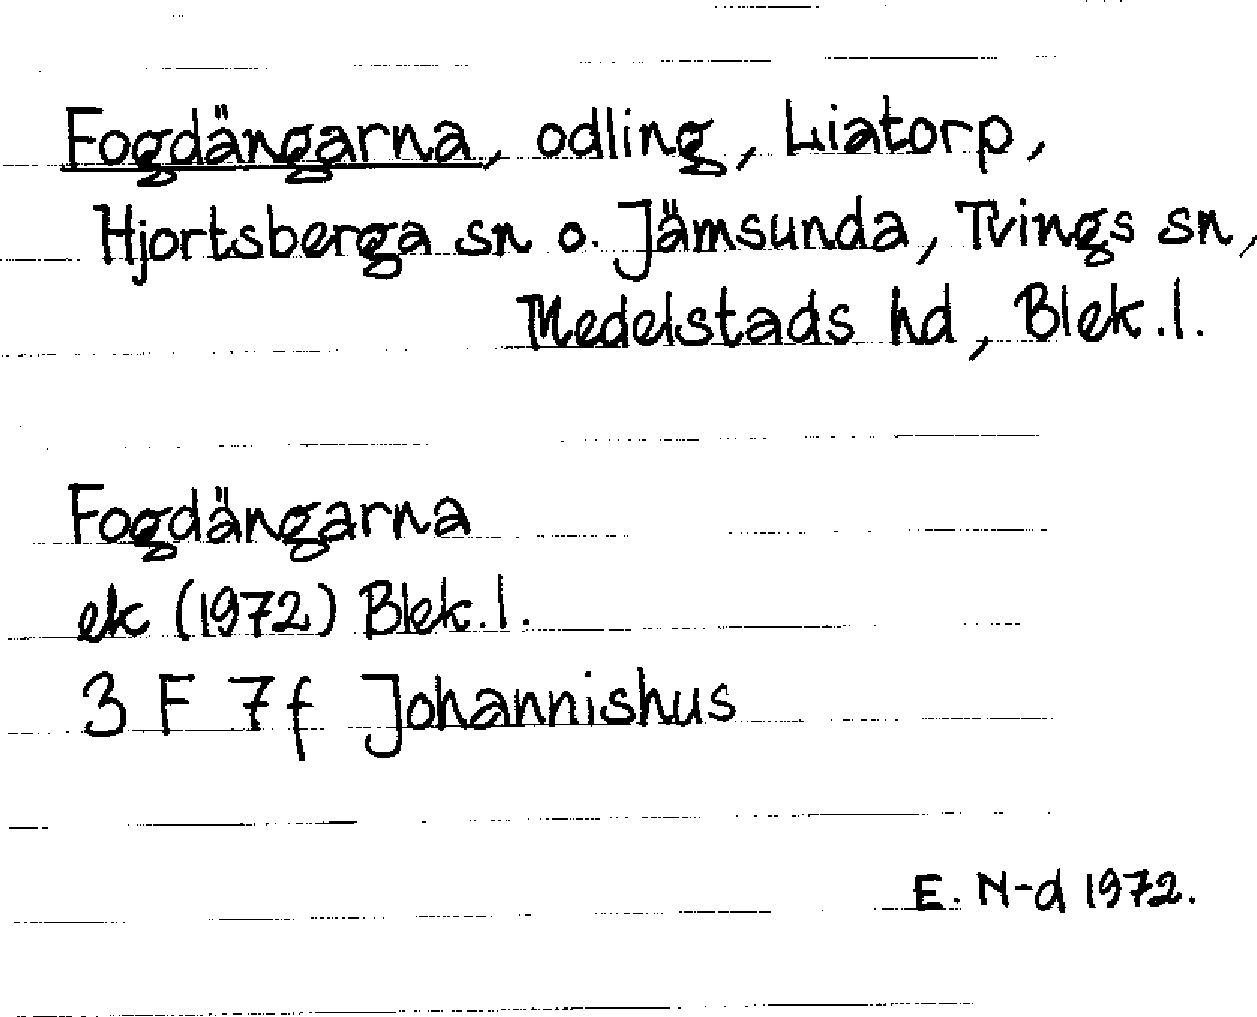 Fogdängarna, odling, Liatorp,
Hjortsberga sn o. Jämsunda, Tvings sn,
Medelstads hd, Blek.l.
Fogdängarna
ek (1972) Blek.l.
3 F 7f Johannishus
E. N-d 1972.